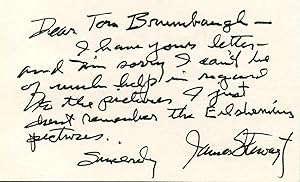 Dear Tom Brumbaugh —
I have your letter —
and I'm sorry I can't be
of much help in regard
to the pictures. I just
don't remember the Eilshemius
pictures.
Sincerely James Stewart